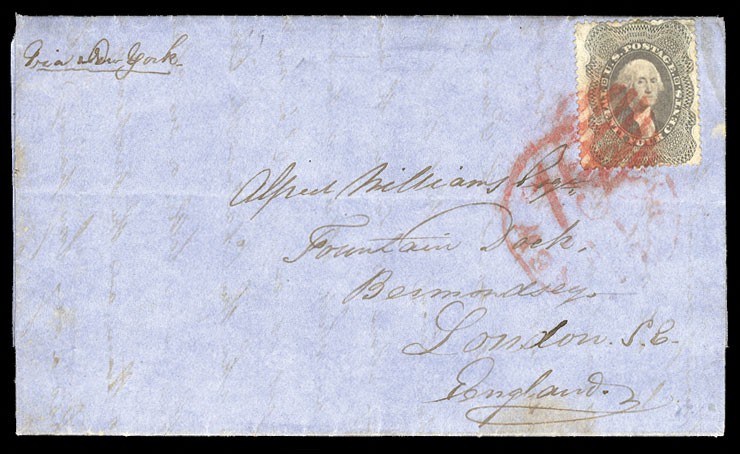 Via New York
U.S. POSTAGE
TWENTY FOUR CENTS
Alfred Williams Esqr.
Fountain Dock.
Bermondsey.
London. S.E.
England.